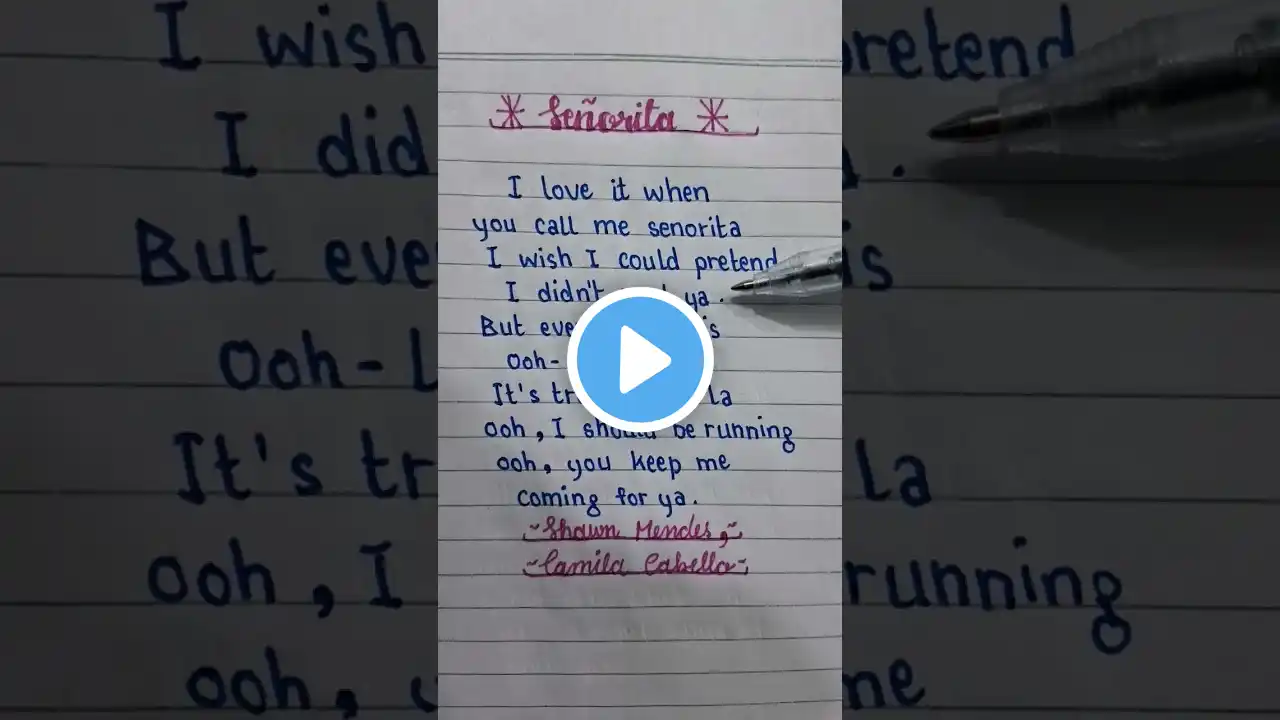 * Señorita *
I love it when
you call me senorita
I wish I could pretend
I didn't ya.
But
ooh-
It's La
ooh, I should be running
ooh, you keep me
coming for ya.
~Shawn Mendes,~
~Camila Cabello~